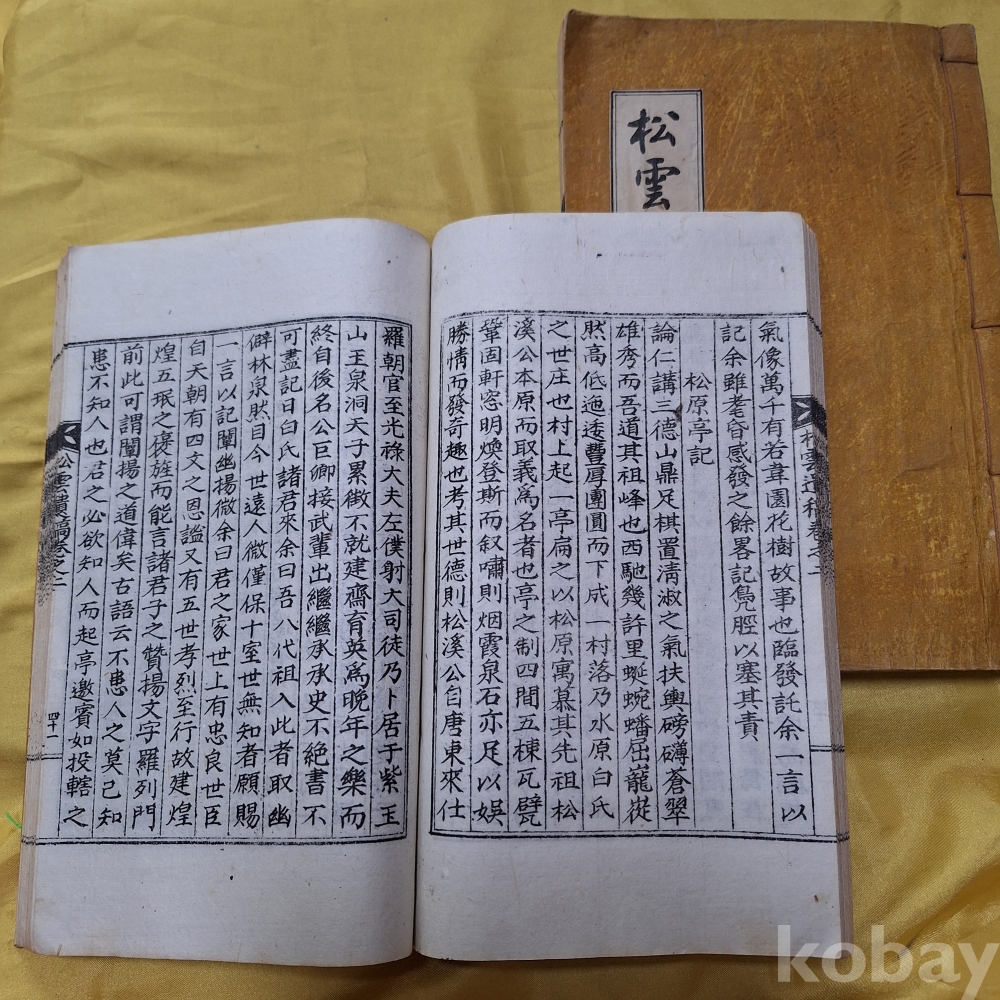 松雲
氣像萬千有若韋園花樹故事也臨發託余一言以
記余雖耄昏感發之餘畧記鳧脛以塞其責
松原亭記
論仁講三德山鼎足棋置淸淑之氣扶輿磅礴蒼翠
雄秀而吾道其祖峰也西馳幾許里蜿蜿蟠屈巃嵸
然高低迤逶豊厚團圓而下成一村落乃水原白氏
之世庄也村上起一亭扁之以松原寓慕其先祖松
溪公本原而取義爲名者也亭之制四間五棟瓦甓
鞏固軒窓明煥登斯而叙嘯則烟霞泉石亦足以娛
勝情而發奇趣也考其世德則松溪公自唐東來仕
羅朝官至光祿大夫左僕射大司徒乃卜居于紫玉
山玉泉洞天子累徵不就建齋育英爲晩年之樂而
終自後名公巨卿接武輩出繼繼承承史不絶書不
可盡記日白氏諸君來余曰吾八代祖入此者取幽
僻林泉然目今世遠人微僅保十室世無知者願賜
一言以記闡幽揚微余曰君之家世上有忠良世臣
自天朝有四文之恩謚又有五世孝烈至行故建煌
煌五珉之褒旌而能言諸君子之贊揚文字羅列門
前此可謂闡揚之道偉矣古語云不患人之莫己知
患不知人也君之必欲知人而起亭邀賓如投轄之
松雲遺稿卷之二
四十二
kobay